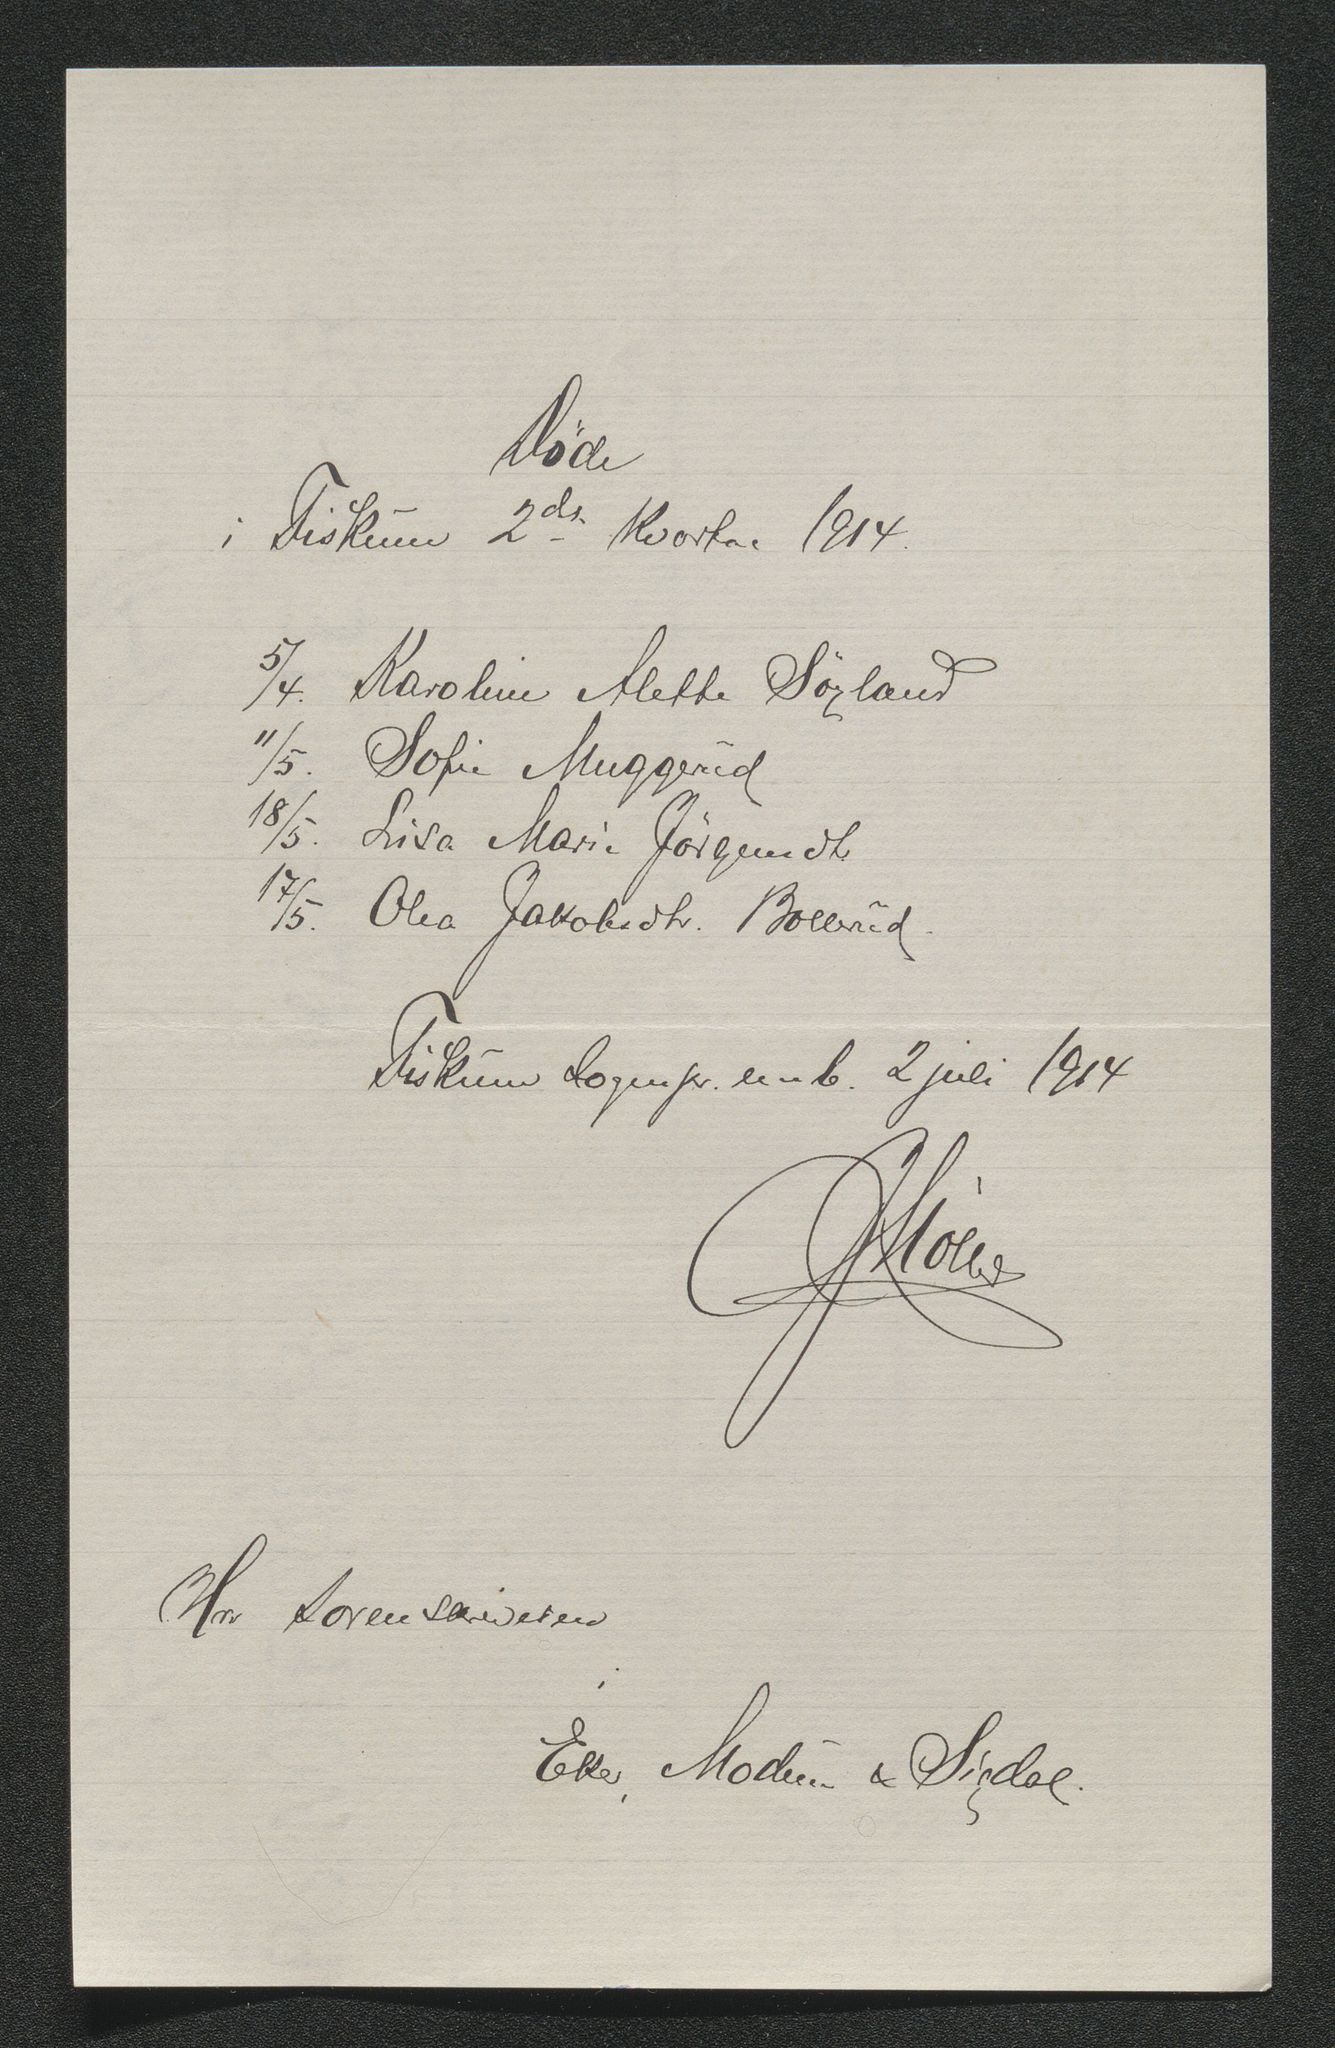 Döde
i Fiskum 2det Kvartal 1914.
5/4. Karoline Alette Sögland
11/5. Sofie Muggerud
18/5. Lisa Marie Jörgensdtr
17/5. Olea Jakobsdtr. Bollerud.
Fiskum Sognepr. emb. 2 juli 1914
Möller
Hr Sorenskriveren
i
Eker, Modum & Sigdal.